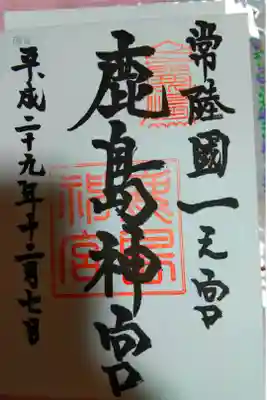 常陸國一之宮
鹿島神宮
平成二十九年十二月七日
鹿島神宮